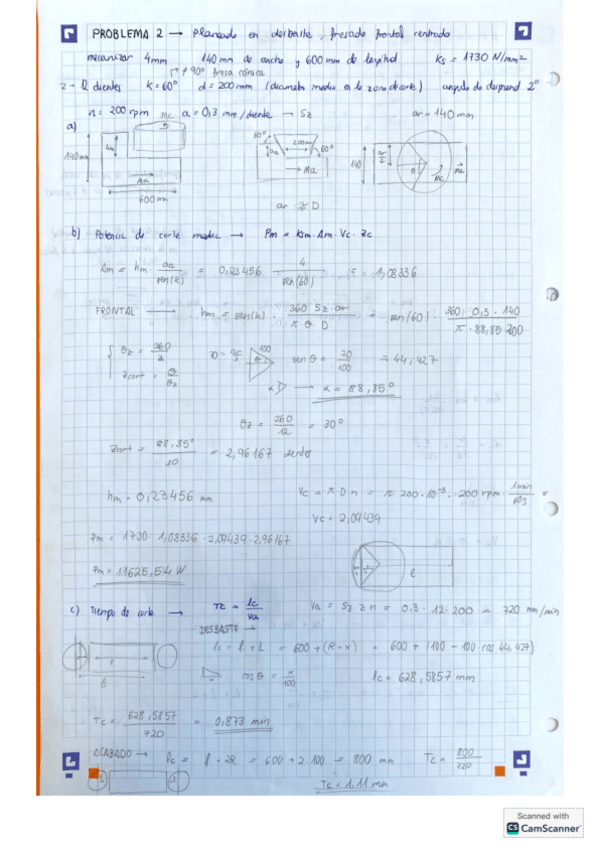 PROBLEMA 2 → planeado en desbaste, fresado frontal centrado
mecanizar 4mm 140 mm de ancho y 600 mm de longitud Ks = 1730 N/mm²
≠ 90° fresa cónica
z = 12 dientes K = 60° d = 200 mm (diametro medio en la zona de corte) angulo de desprend 2°
n = 200 rpm a = 0,3 mm/diente → Sz ar = 140 mm
a) Mc
140 mm 4mm Ma 600 mm
60° 200mm aa 60° Ma
140 Mc Ma
ar D
b) Potencia de corte media → Pm = Km · Am · Vc · Zc
Am = hm · aa/sen(k) = 0,23456 · 4/sen(60) = 1,08336
FRONTAL → hm = sen(k) · 360 Sz · ar/π θ D = sen(60) · 360 · 0,3 · 140/π · 88,85 · 200
θz = 360/z
Zcont = θ/θz
100
sen θ = 70/100 = 44,427
→ α = 88,85°
θz = 360/12 = 30°
Zcont = 88,85°/30 = 2,96167 dientes
hm = 0,23456 mm Vc = π D n = π 200 · 10⁻³ · 200 rpm · 1min/60s =
Vc = 2,09439
Pm = 1730 · 1,08336 · 2,09439 · 2,96167
Pm = 11625,54 W
c) Tiempo de corte → Tc = lc/Va Va = Sz z n = 0,3 · 12 · 200 = 720 mm/min
DESBASTE →
lc = l + L = 600 + (R - x) = 600 + (100 - 100 · cos 44,427)
cos θ = x/100 lc = 628,5857 mm
Tc = 628,5857/720 = 0,873 min
ACABADO → lc = l + 2R = 600 + 2 · 100 = 800 mm Tc = 800/720
Tc = 1,11 min
Scanned with
CS CamScanner